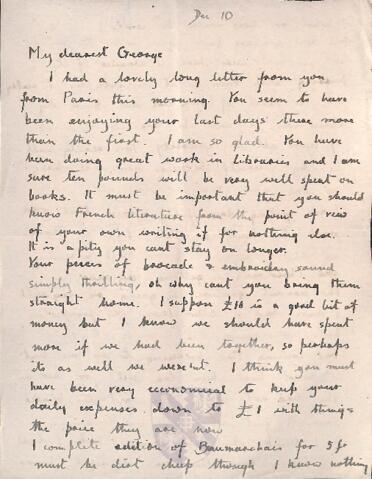 Dec 10
My dearest George
I had a lovely long letter from you
from Paris this morning. You seem to have
been enjoying your last days there more
than the first. I am so glad. You have
been doing great work in libraries and I am
sure ten pounds will be very well spent on
books. It must be important that you should
know French literature from the point of view
of your own writing if for nothing else.
It is a pity you cant stay on longer.
Your pieces of brocade & embroidery sound
simply thrilling, oh why cant you bring them
straight home. I suppose £18 is a good bit of
money but I know we should have spent
more if we had been together, so perhaps
its as well we werent. I think you must
have been very economical to keep your
daily expenses down to £1 with things
the price they are now
1 complete edition of Beaumarchais for 5 fr
must be dirt cheap though I know nothing